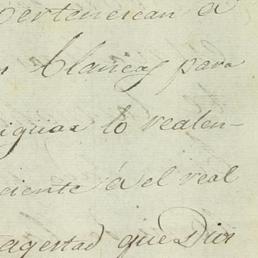 pertenescan a
blancas para
iguar lo realen-
ciente a el real
agestad que Dios